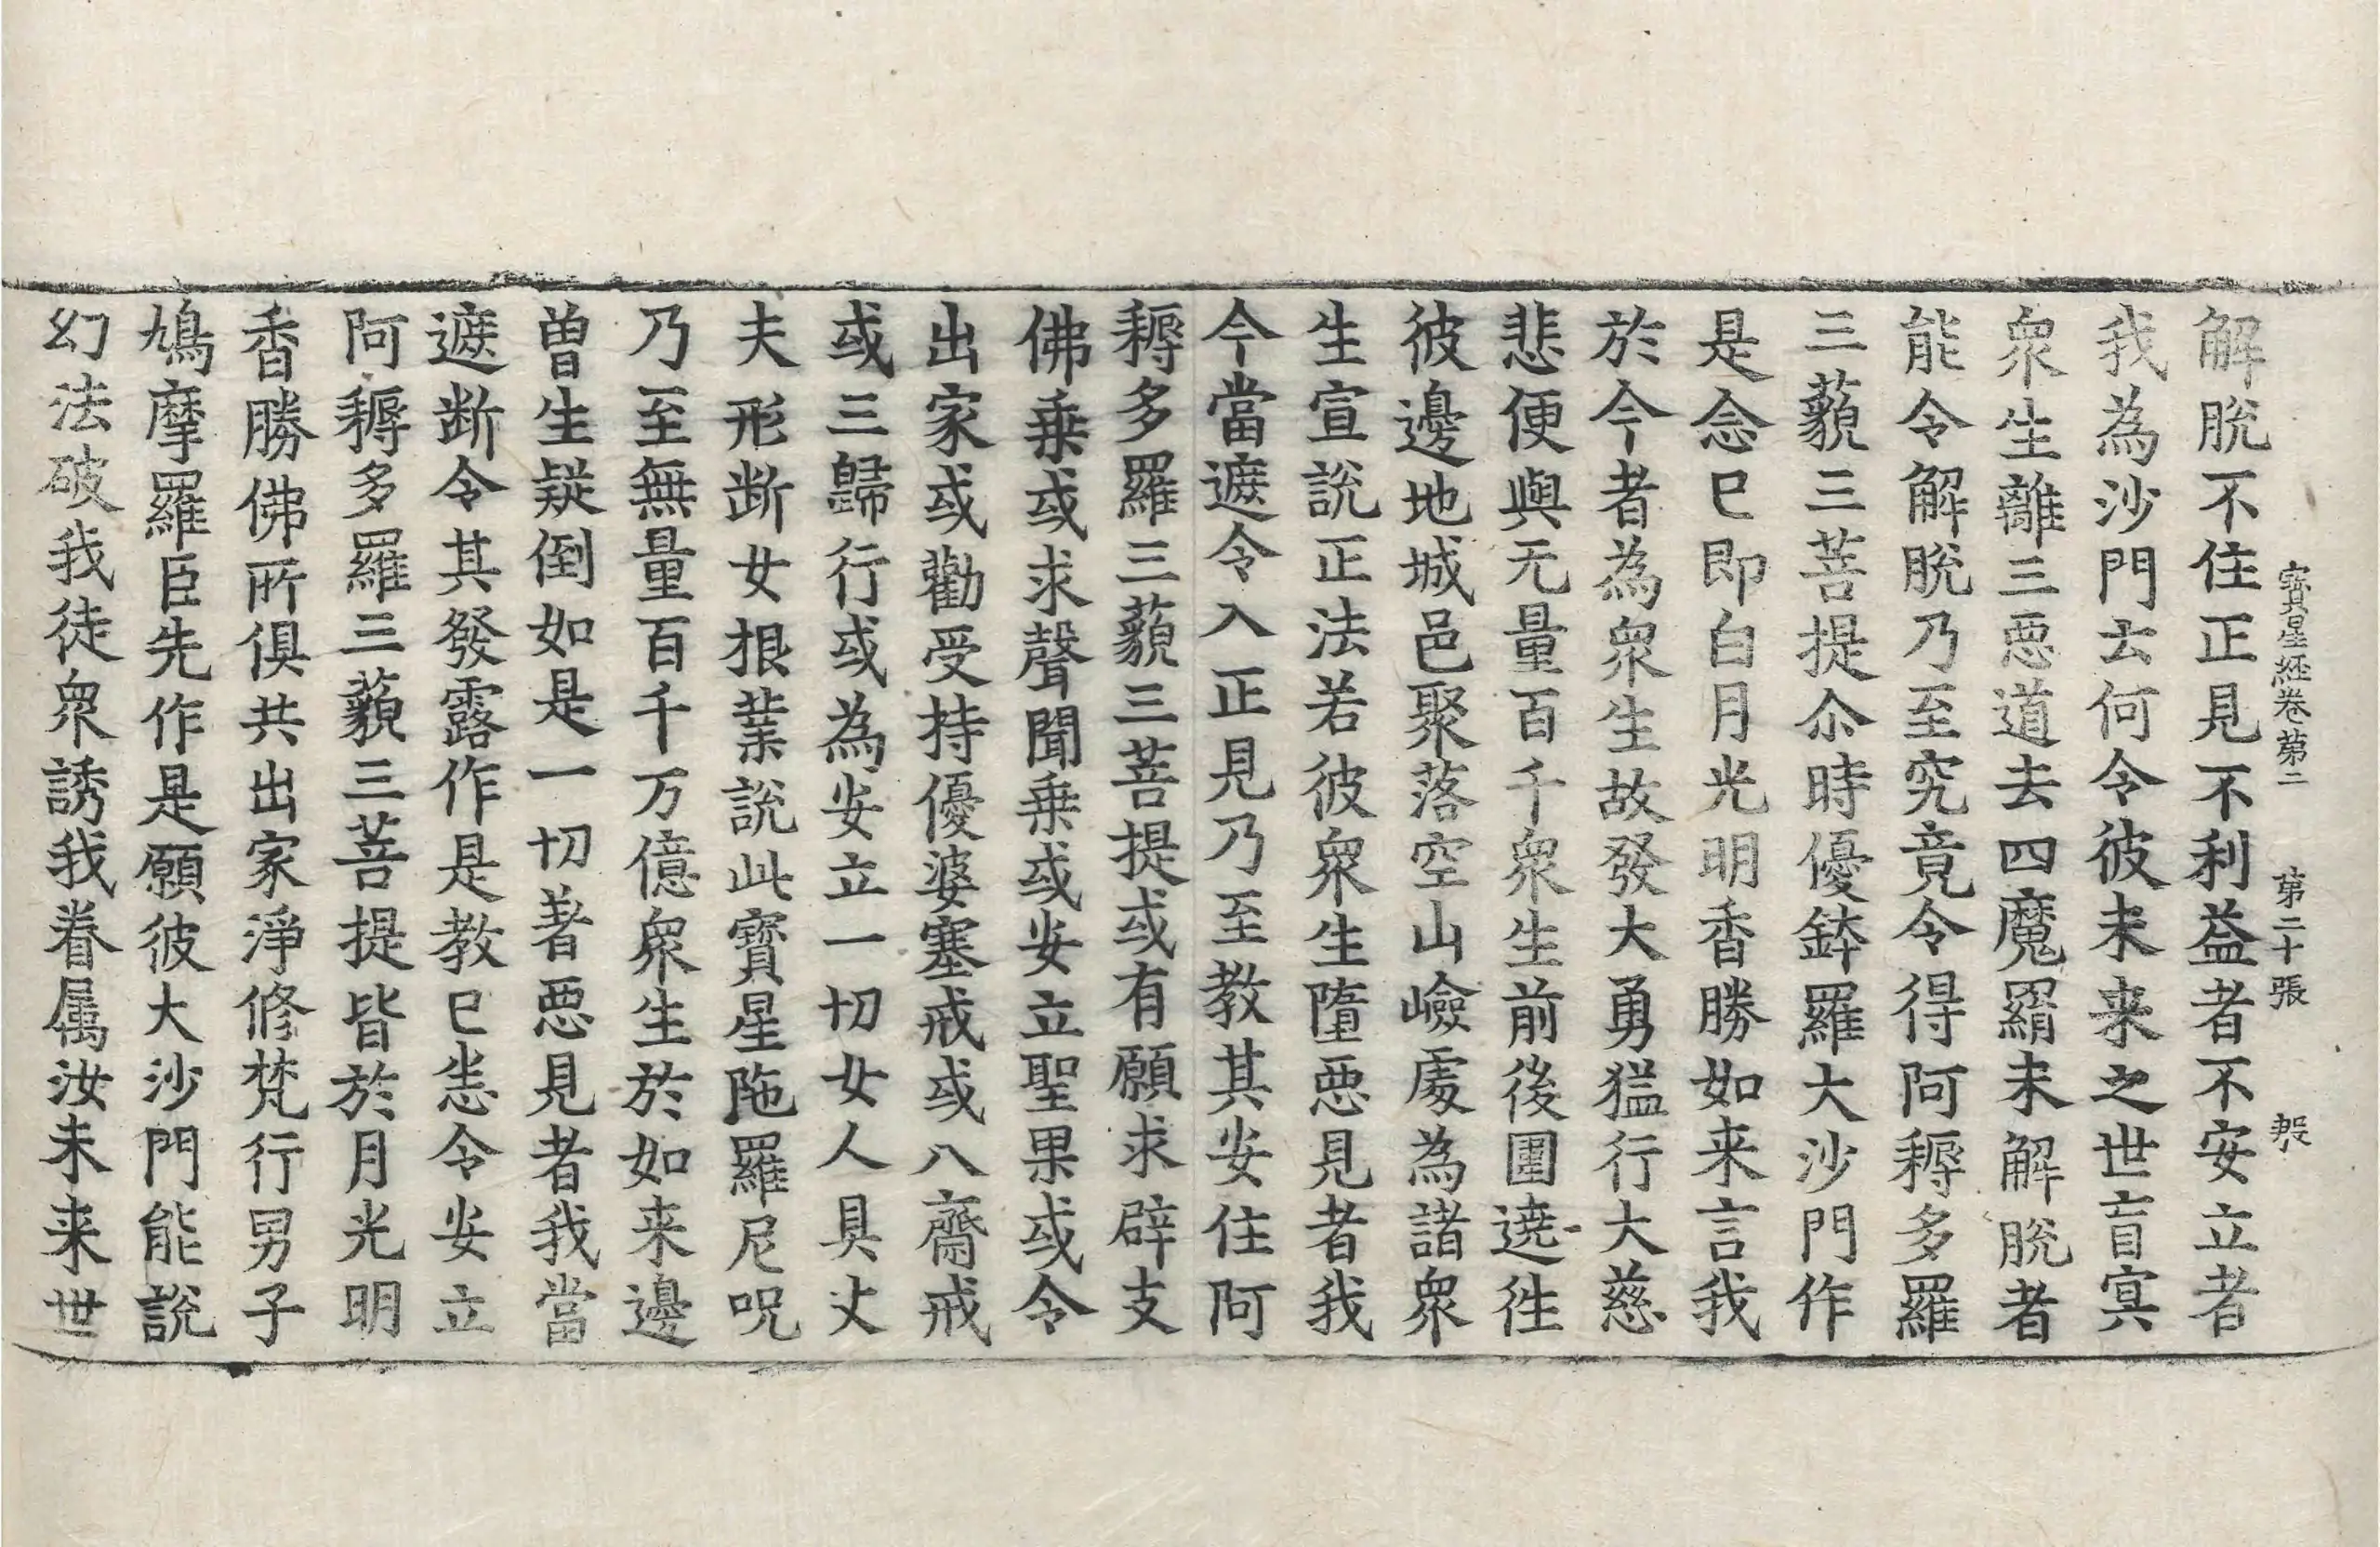 寳星經卷第二　第二十張　彀
解脫不住正見不利益者不安立者
我為沙門云何令彼未来之世盲冥
衆生離三惡道去四魔羂未解脫者
能令解脫乃至究竟令得阿耨多羅
三藐三菩提尒時優鉢羅大沙門作
是念已即白月光明香勝如来言我
於今者為衆生故發大勇猛行大慈
悲便與无量百千衆生前後圍遶徃
彼邊地城邑聚落空山嶮處為諸衆
生宣說正法若彼衆生墮惡見者我
今當遮令入正見乃至教其安住阿
耨多羅三藐三菩提或有願求辟支
佛乗或求聲聞乗或安立聖果或令
出家或勸受持優婆塞戒或八齋戒
或三歸行或為安立一切女人具丈
夫形断女根業說此寳星陁羅尼呪
乃至無量百千万億衆生於如来邊
曽生疑倒如是一切著惡見者我當
遮断令其發露作是教已恙令安立
阿耨多羅三藐三菩提皆於月光明
香勝佛所俱共出家淨修梵行男子
鳩摩羅臣先作是願彼大沙門能說
幻法破我徒衆誘我眷属汝未来世